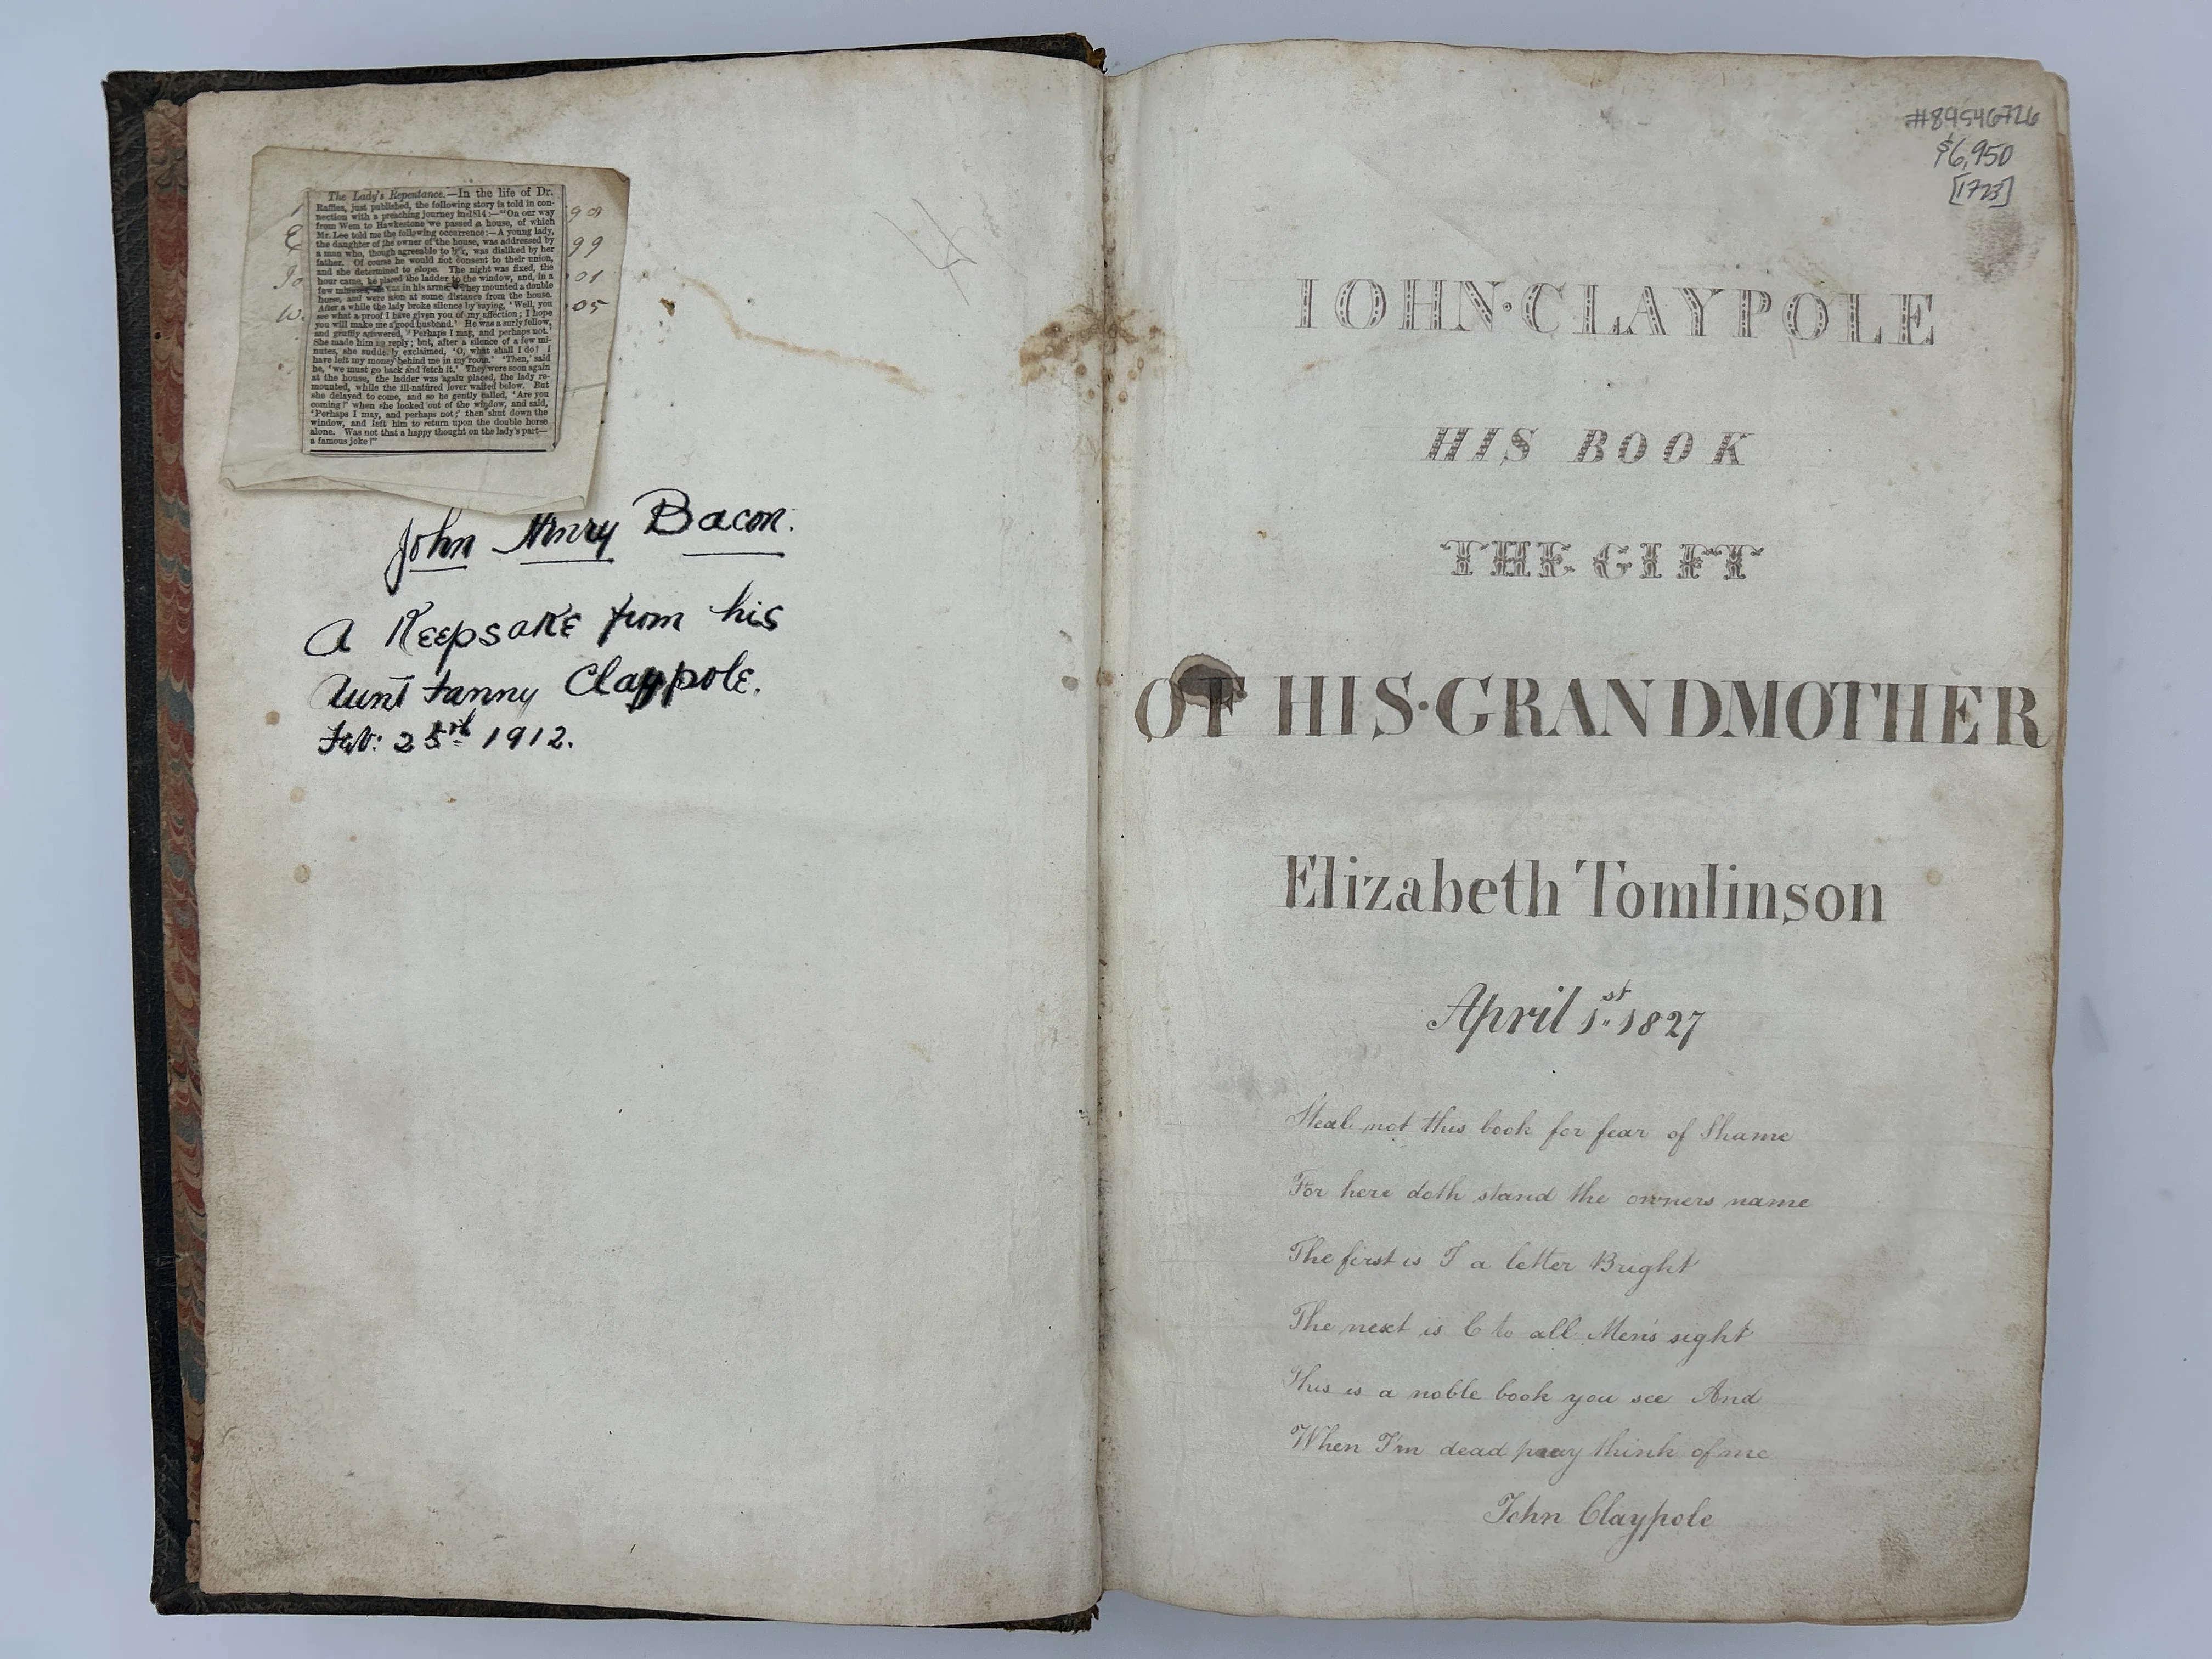 The Lady's Repentance.—In the life of Dr.
Raffles, just published, the following story is told in con-
nection with a preaching journey in 1814:—"On our way
from Wem to Hawkestone we passed a house, of which
Mr. Lee told me the following occurrence:—A young lady,
the daughter of the owner of the house, was addressed by
a man who, though agreeable to her, was disliked by her
father. Of course he would not consent to their union,
and she determined to elope. The night was fixed, the
hour came, he placed the ladder to the window, and, in a
few minutes, she was in his arms. They mounted a double
horse, and were soon at some distance from the house.
After a while the lady broke silence by saying, 'Well, you
see what a proof I have given you of my affection; I hope
you will make me a good husband.' He was a surly fellow,
and gruffly answered, 'Perhaps I may, and perhaps not.'
She made him no reply; but, after a silence of a few mi-
nutes, she suddenly exclaimed, 'O, what shall I do? I
have left my money behind me in my room.' 'Then,' said
he, 'we must go back and fetch it.' They were soon again
at the house, the ladder was again placed, the lady re-
mounted, while the ill-natured lover waited below. But
she delayed to come, and so he gently called, 'Are you
coming?' when she looked out of the window, and said,
'Perhaps I may, and perhaps not;' then shut down the
window, and left him to return upon the double horse
alone. Was not that a happy thought on the lady's part—
a famous joke?"
99
01
05
John Henry Bacon.
A Keepsake from his
Aunt Fanny Claypole.
Feb: 25rd 1912.
#89546726
$6,950
[1723]
IOHN·CLAYPOLE
HIS BOOK
THE GIFT
OF HIS·GRANDMOTHER
Elizabeth Tomlinson
April 1st 1827
Steal not this book for fear of Shame
For here doth stand the owners name
The first is I a letter Bright
The next is C to all Men's sight
This is a noble book you see And
When I'm dead pray think of me
John Claypole